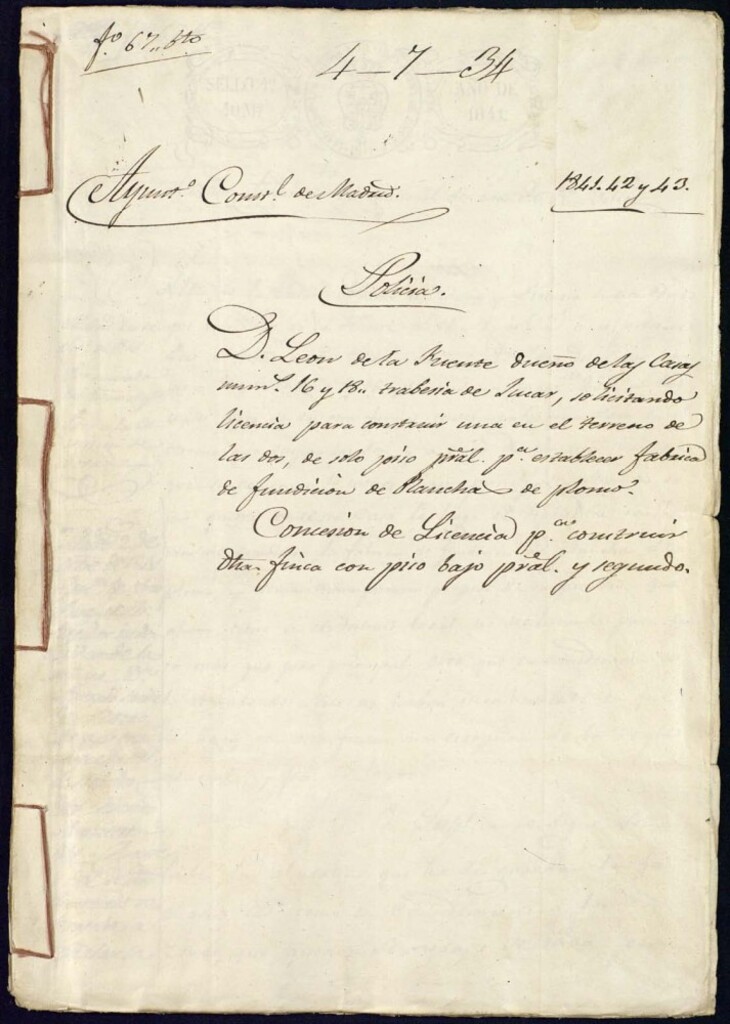 fº 67 bto
4-7-34
Ayuntº Constl de Madrid.
1841. 42 y 43.
Policia.
D. Leon de la Fuente dueño de las Casas
nums. 16 y 18 trabesia de Fucar, solicitando
licencia para construir una en el terreno de
las dos, de solo piso pral. pa establecer fabrica
de fundicion de Planchas de plomo.
Concesion de Licencia pa construir
dha. finca con piso bajo pral. y segundo.